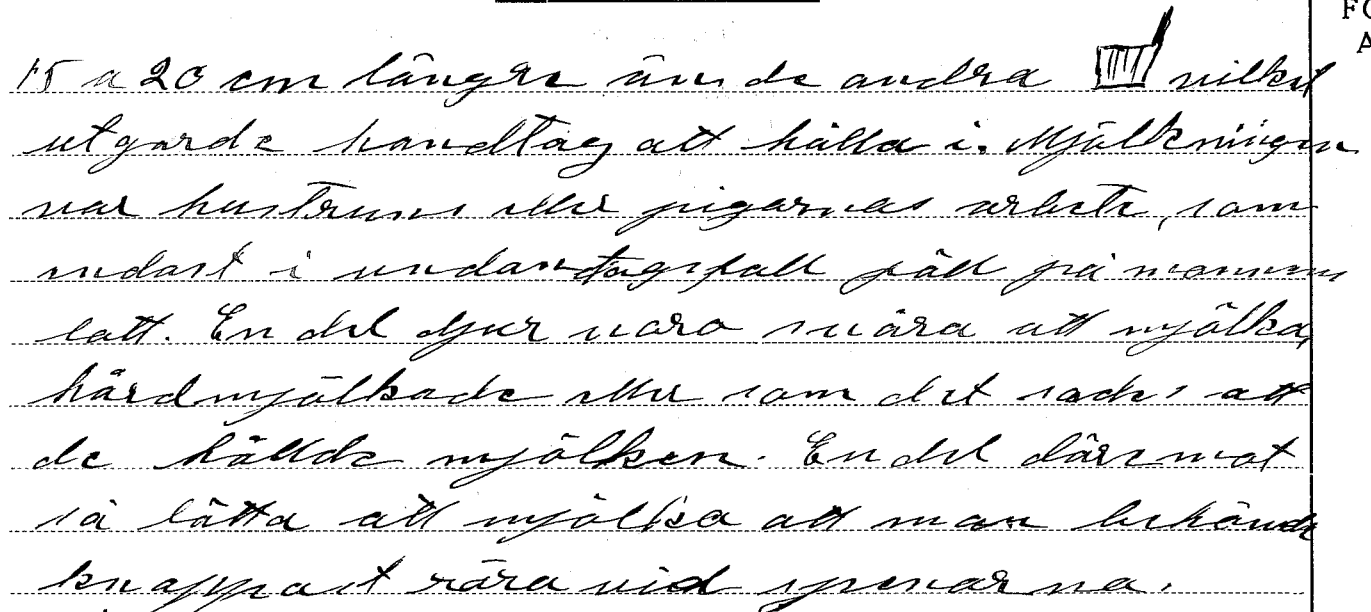 15 a 20 cm längre än de andra vilket
utgorde handtag att hålla i. Mjölkningen
var hustruns eller pigornas arbete, som
endast i undantagsfall föll på mannens
lott. En del djur voro svåra att mjölka,
hårdmjölkade eller som det sades att
de hålld mjölken. En del däremot
så lätta att mjölka att man behövde
knappast röra vid spenarna.
FÖ
A